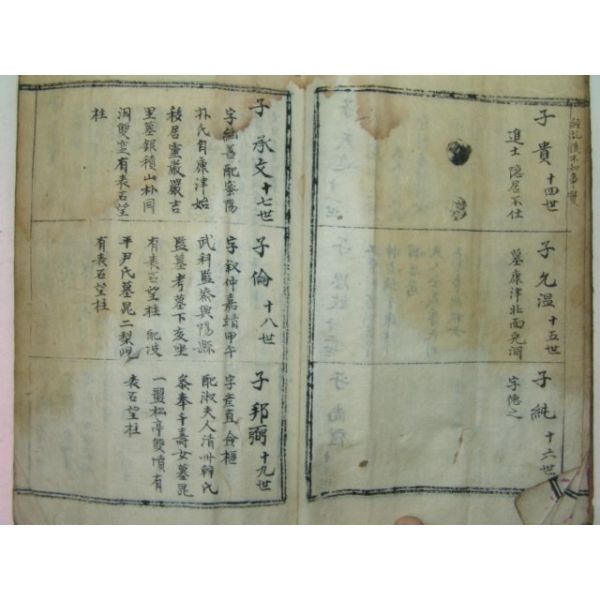 子貴 十四世
進士 隱居不仕
子允溫 十五世
墓康津北面兎洞
子純 十六世
字德之
子承文 十七世
字繼善配密陽
朴氏自康津始
移居靈巖嚴吉
里墓銀積山朴同
洞雙窆有表石望
柱
子倫 十八世
字叙仲嘉靖甲午
武科監察興陽縣
監墓考墓下亥坐
有表石望柱 配坡
平尹氏墓昆二梨峴
有表石望柱
子邦弼 十九世
字產直 僉樞
配淑夫人清州韓氏
叅奉千壽女墓昆
一罡松亭雙墳有
表石望柱